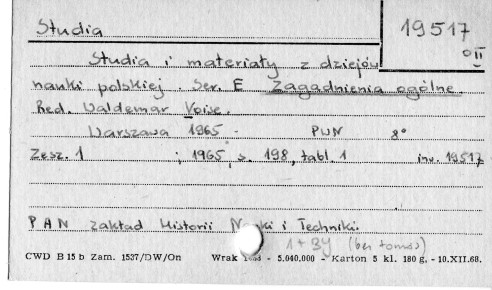 Studia
19517
II
Studia i materiały z dziejów
nauki polskiej. Ser. E Zagadnienia ogólne.
Red. Waldemar Voisé.
Warszawa 1965 - PWN 8°
Zesz. 1 ; 1965, s. 198, tabl. 1 inv. 19517
PAN Zakład Historii Nauki i Techniki.
1+BY (bez tomów)
CWD B 15 b Zam. 1537/DW/On Wrak - 5.040.000 - Karton 5 kl. 180 g. - 10.XII.68.